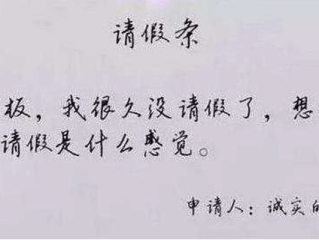 请假条
板，我很久没请假了，想
请假是什么感觉。
申请人：诚实的